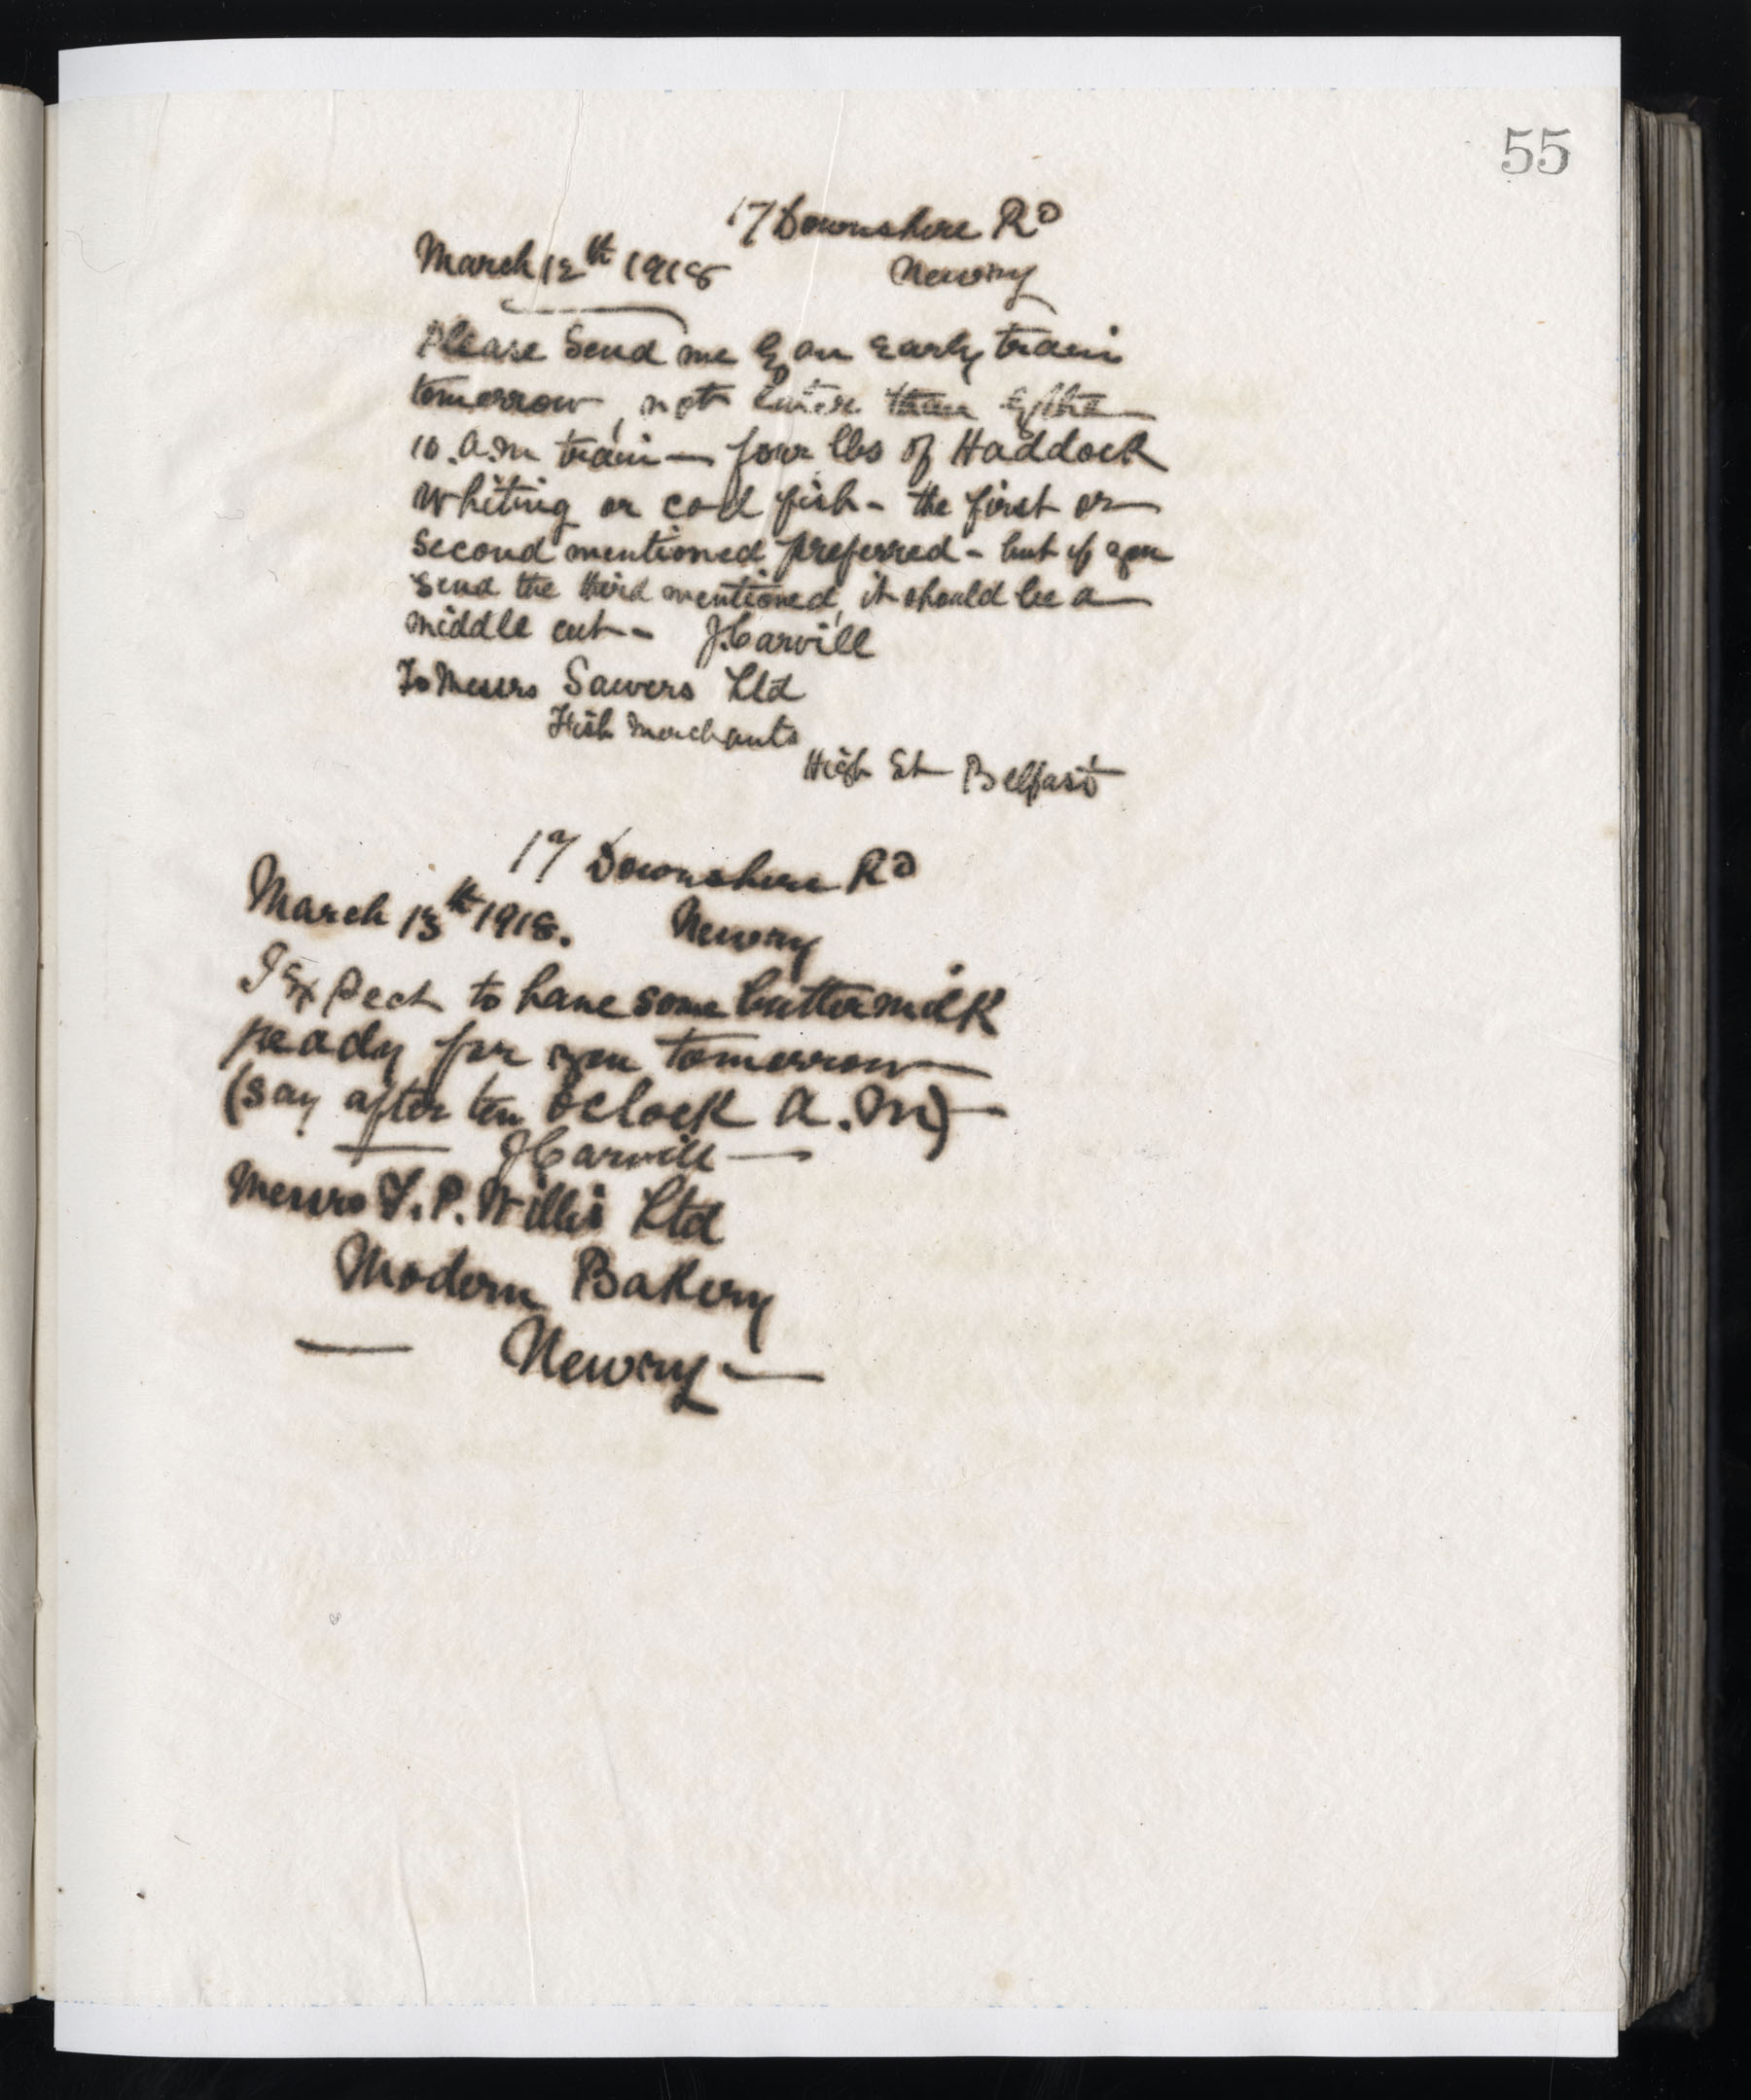 55
17 Downshire Rd
March 12th 1918 Newry
Please Send me by an early train
tomorrow, not later than by the
10.a.m train — four lbs of Haddock
Whiting or cod fish - the first or
second mentioned preferred - but if you
send the third mentioned, it should be a
middle cut - J.Carvill
To Messrs Sawers Ltd
Fish Merchants
High St Belfast
17 Downshire Rd
March 13th 1918. Newry
I Expect to have some buttermilk
ready for you tomorrow
(say after ten oclock a.m) —
— J Carvill —
Messrs F.P. Willis Ltd
Modern Bakery
— Newry —